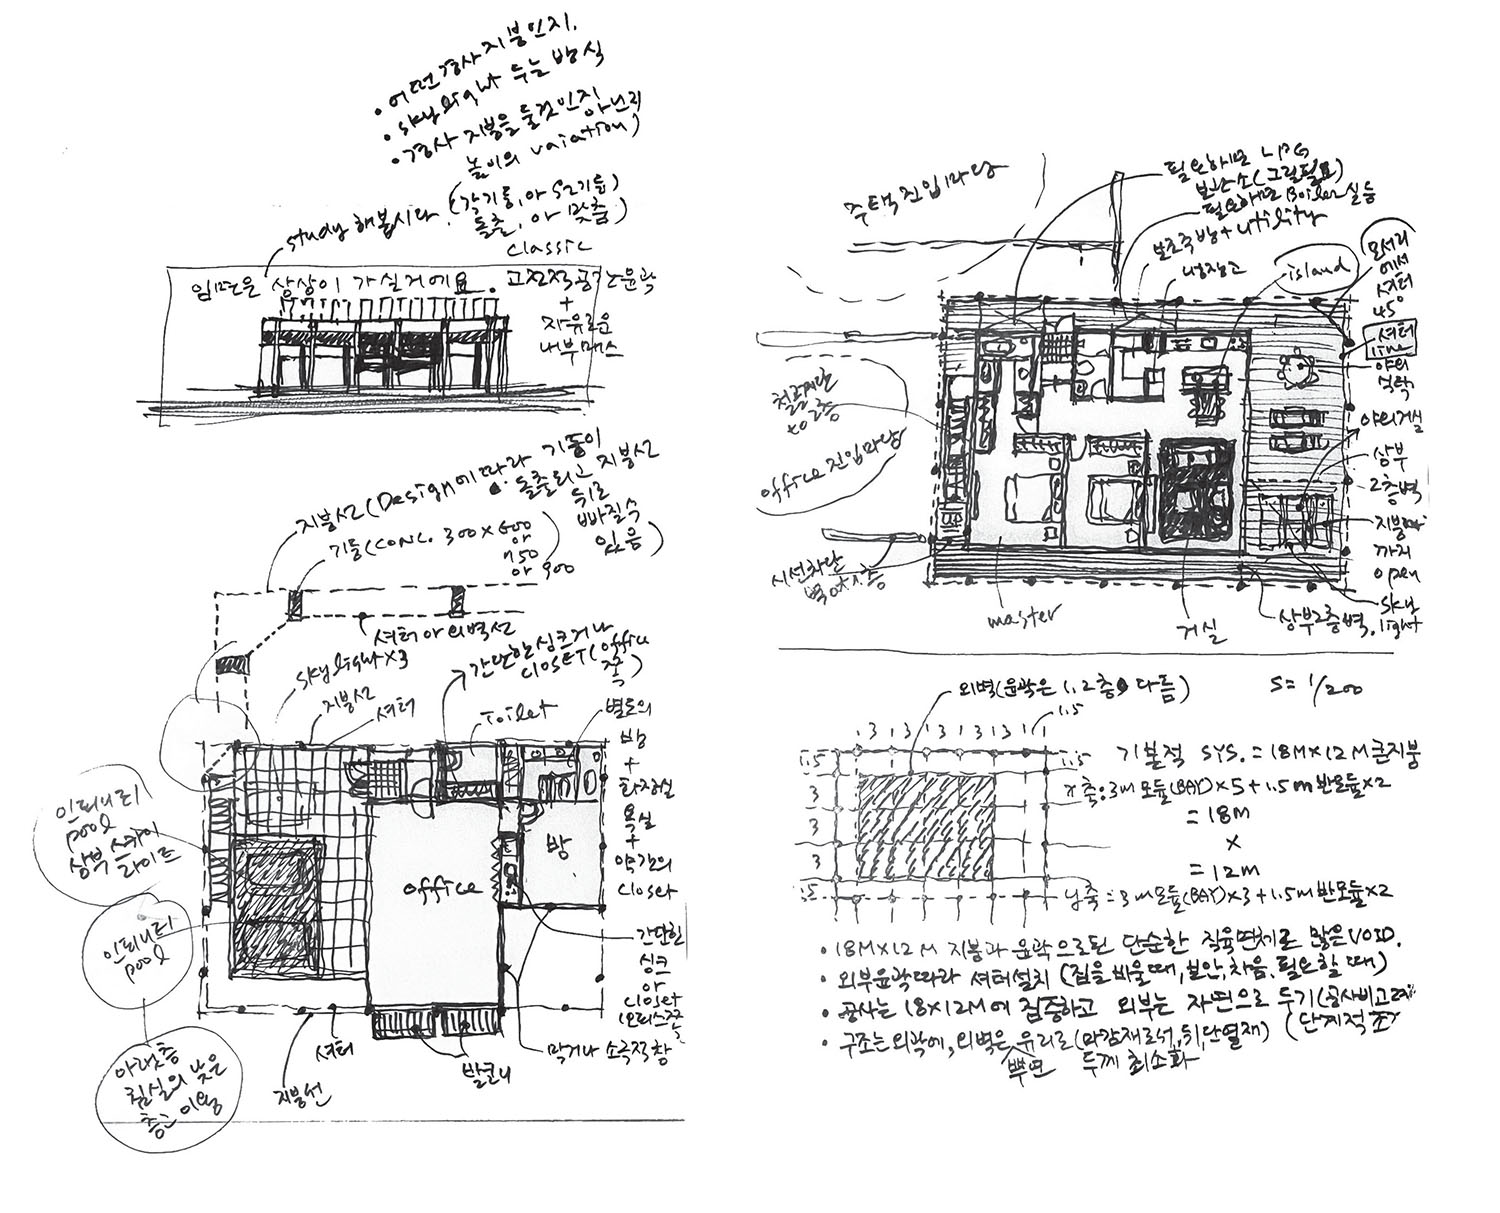 • 어떤 경사 지붕인지.
• skylight 두는 방식
• 경사 지붕을 둘것인지 아닌지
높이의 vaiation)
study 해봅시다. (각기둥, 아 S2기둥)
돌출, 아 맞춤)
classic
입면은 상상이 가실거에요. 고전적공간윤곽
+
자유로운
내부매스
지붕선(Design에 따라 기둥이
돌출되고 지붕선
뒤로
빠질수
있음)
기둥(CONC. 300×600
or
750
or 900
셔터 아 외벽선
skylight×3
지붕선
셔터
간단한 싱크거나
CLOSET(office
쪽)
Toilet
별도의
방
+
화장실
욕실
+
약간의
closet
인피니티
pool
상부 스카이
라이트
office
방
인피니티
pool
간단한
싱크
or
closet
(오피스쪽)
아래층
침실의 낮은
층고 이용
셔터
지붕선
발코니
막거나 소극적 창
주택진입마당
필요하면 LPG
보관소(그릴필요)
필요하면 Boiler실 등
보조주방+utility
냉장고
island
모서리
에서
셔터
45°
셔터
line
야외
식탁
야외거실
상부
2층벽
지붕까지
open
sky
light
철제계단
to 2층
office 진입마당
시선차단
벽 여기층
master
거실
상부2층벽.
외벽(윤곽은 1,2층 다름)
S= 1/200
3 3 3 3 3
1.5
1.5
3
3
3
1.5
1.5
기본적 SYS. = 18M×12M 큰지붕
X축: 3m모듈(BAY)×5+1.5m반모듈×2
= 18M
X
= 12m
y축 = 3m모듈(BAY)×3+1.5m반모듈×2
• 18M×12M 지붕과 윤곽으로된 단순한 직육면체로 많은 VOID.
• 외부윤곽따라 셔터설치 (집을 비울때, 보안, 차음, 필요할 때)
• 공사는 18×12M에 집중하고 외부는 자연으로 두기(공사비고려
• 구조는 외곽에, 외벽은 유리로(마감재로서, 뒤,단열재) (단계적 조
뿌연 두께 최소화